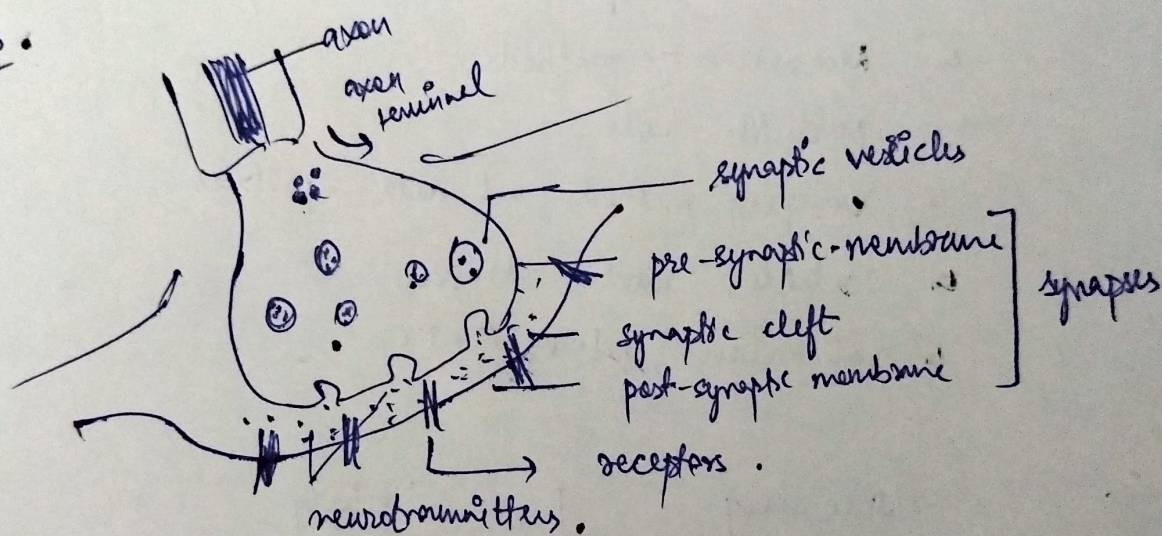 axon
axon
terminal
synaptic vesicles
pre-synaptic-membrane
synapses
synaptic cleft
post-synaptic membrane
receptors .
neurotransmitters .